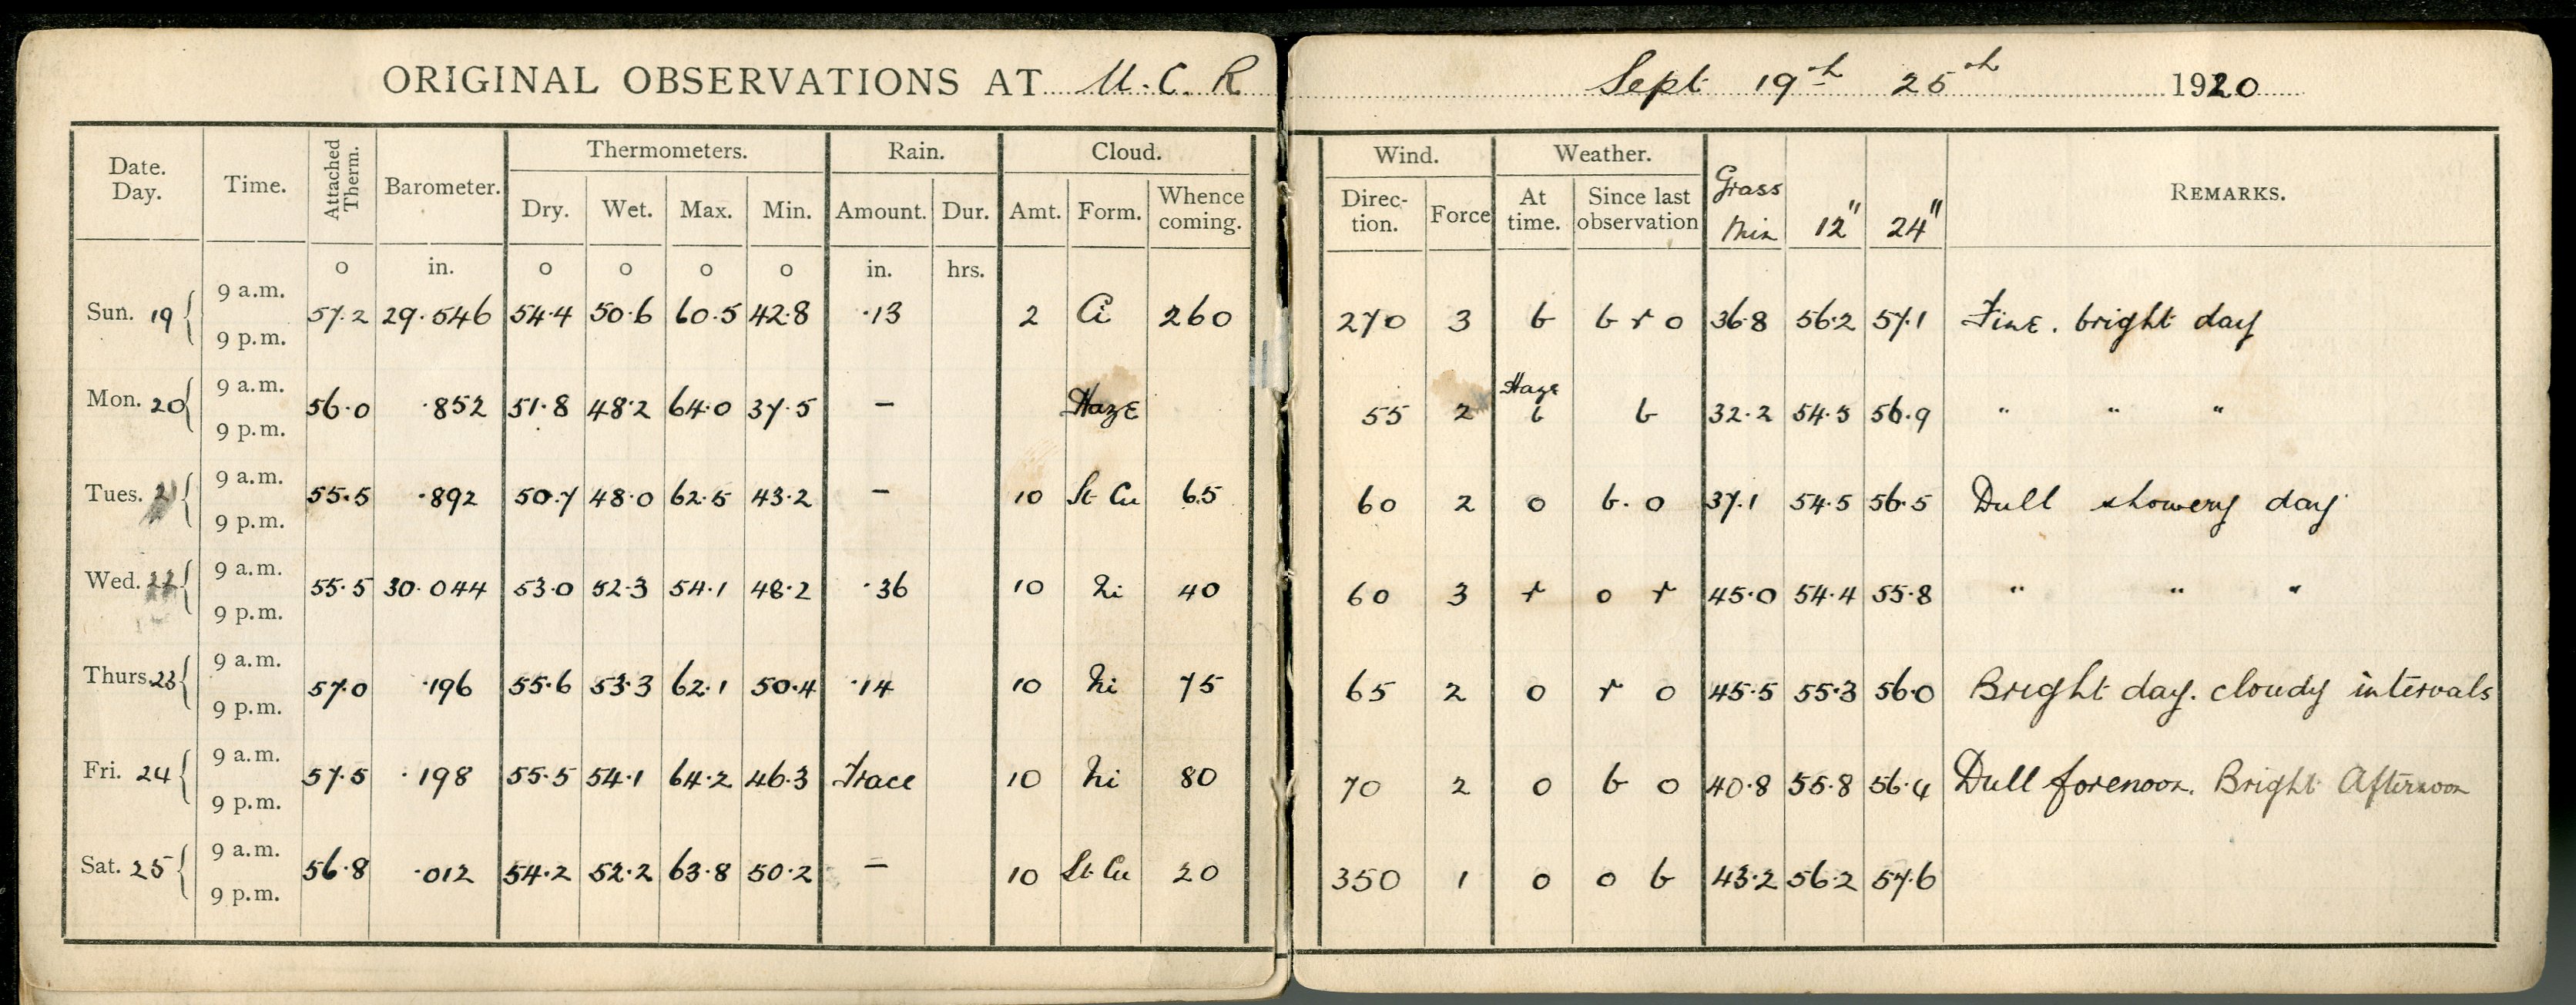 ORIGINAL OBSERVATIONS AT U. C. R Sept 19th 25th 1920
Date. Day. Time. Attached Therm. Barometer. Thermometers. Rain. Cloud. Wind. Weather. Grass Min 12" 24" REMARKS.
Dry. Wet. Max. Min. Amount. Dur. Amt. Form. Whence coming. Direction. Force At time. Since last observation
o in. o o o o in. hrs.
Sun. 19 9 a.m. 57.2 29.546 54.4 50.6 60.5 42.8 .13 2 Ci 260 270 3 b b r o 36.8 56.2 57.1 Fine. bright day
9 p.m.
Mon. 20 9 a.m. 56.0 .852 51.8 48.2 64.0 37.5 — Haze 55 2 Haze b b 32.2 54.5 56.9 " " "
9 p.m.
Tues. 21 9 a.m. 55.5 .892 50.7 48.0 62.5 43.2 — 10 St Cu 65 60 2 o b. o 37.1 54.5 56.5 Dull showery day
9 p.m.
Wed. 22 9 a.m. 55.5 30.044 53.0 52.3 54.1 48.2 .36 10 Ni 40 60 3 r o r 45.0 54.4 55.8 " " "
9 p.m.
Thurs. 23 9 a.m. 57.0 .196 55.6 53.3 62.1 50.4 .14 10 Ni 75 65 2 o r o 45.5 55.3 56.0 Bright day. cloudy intervals
9 p.m.
Fri. 24 9 a.m. 57.5 .198 55.5 54.1 64.2 46.3 Trace 10 Ni 80 70 2 o b o 40.8 55.8 56.4 Dull forenoon. Bright Afternoon
9 p.m.
Sat. 25 9 a.m. 56.8 .012 54.2 52.2 63.8 50.2 — 10 St Cu 20 350 1 o o b 43.2 56.2 57.6
9 p.m.